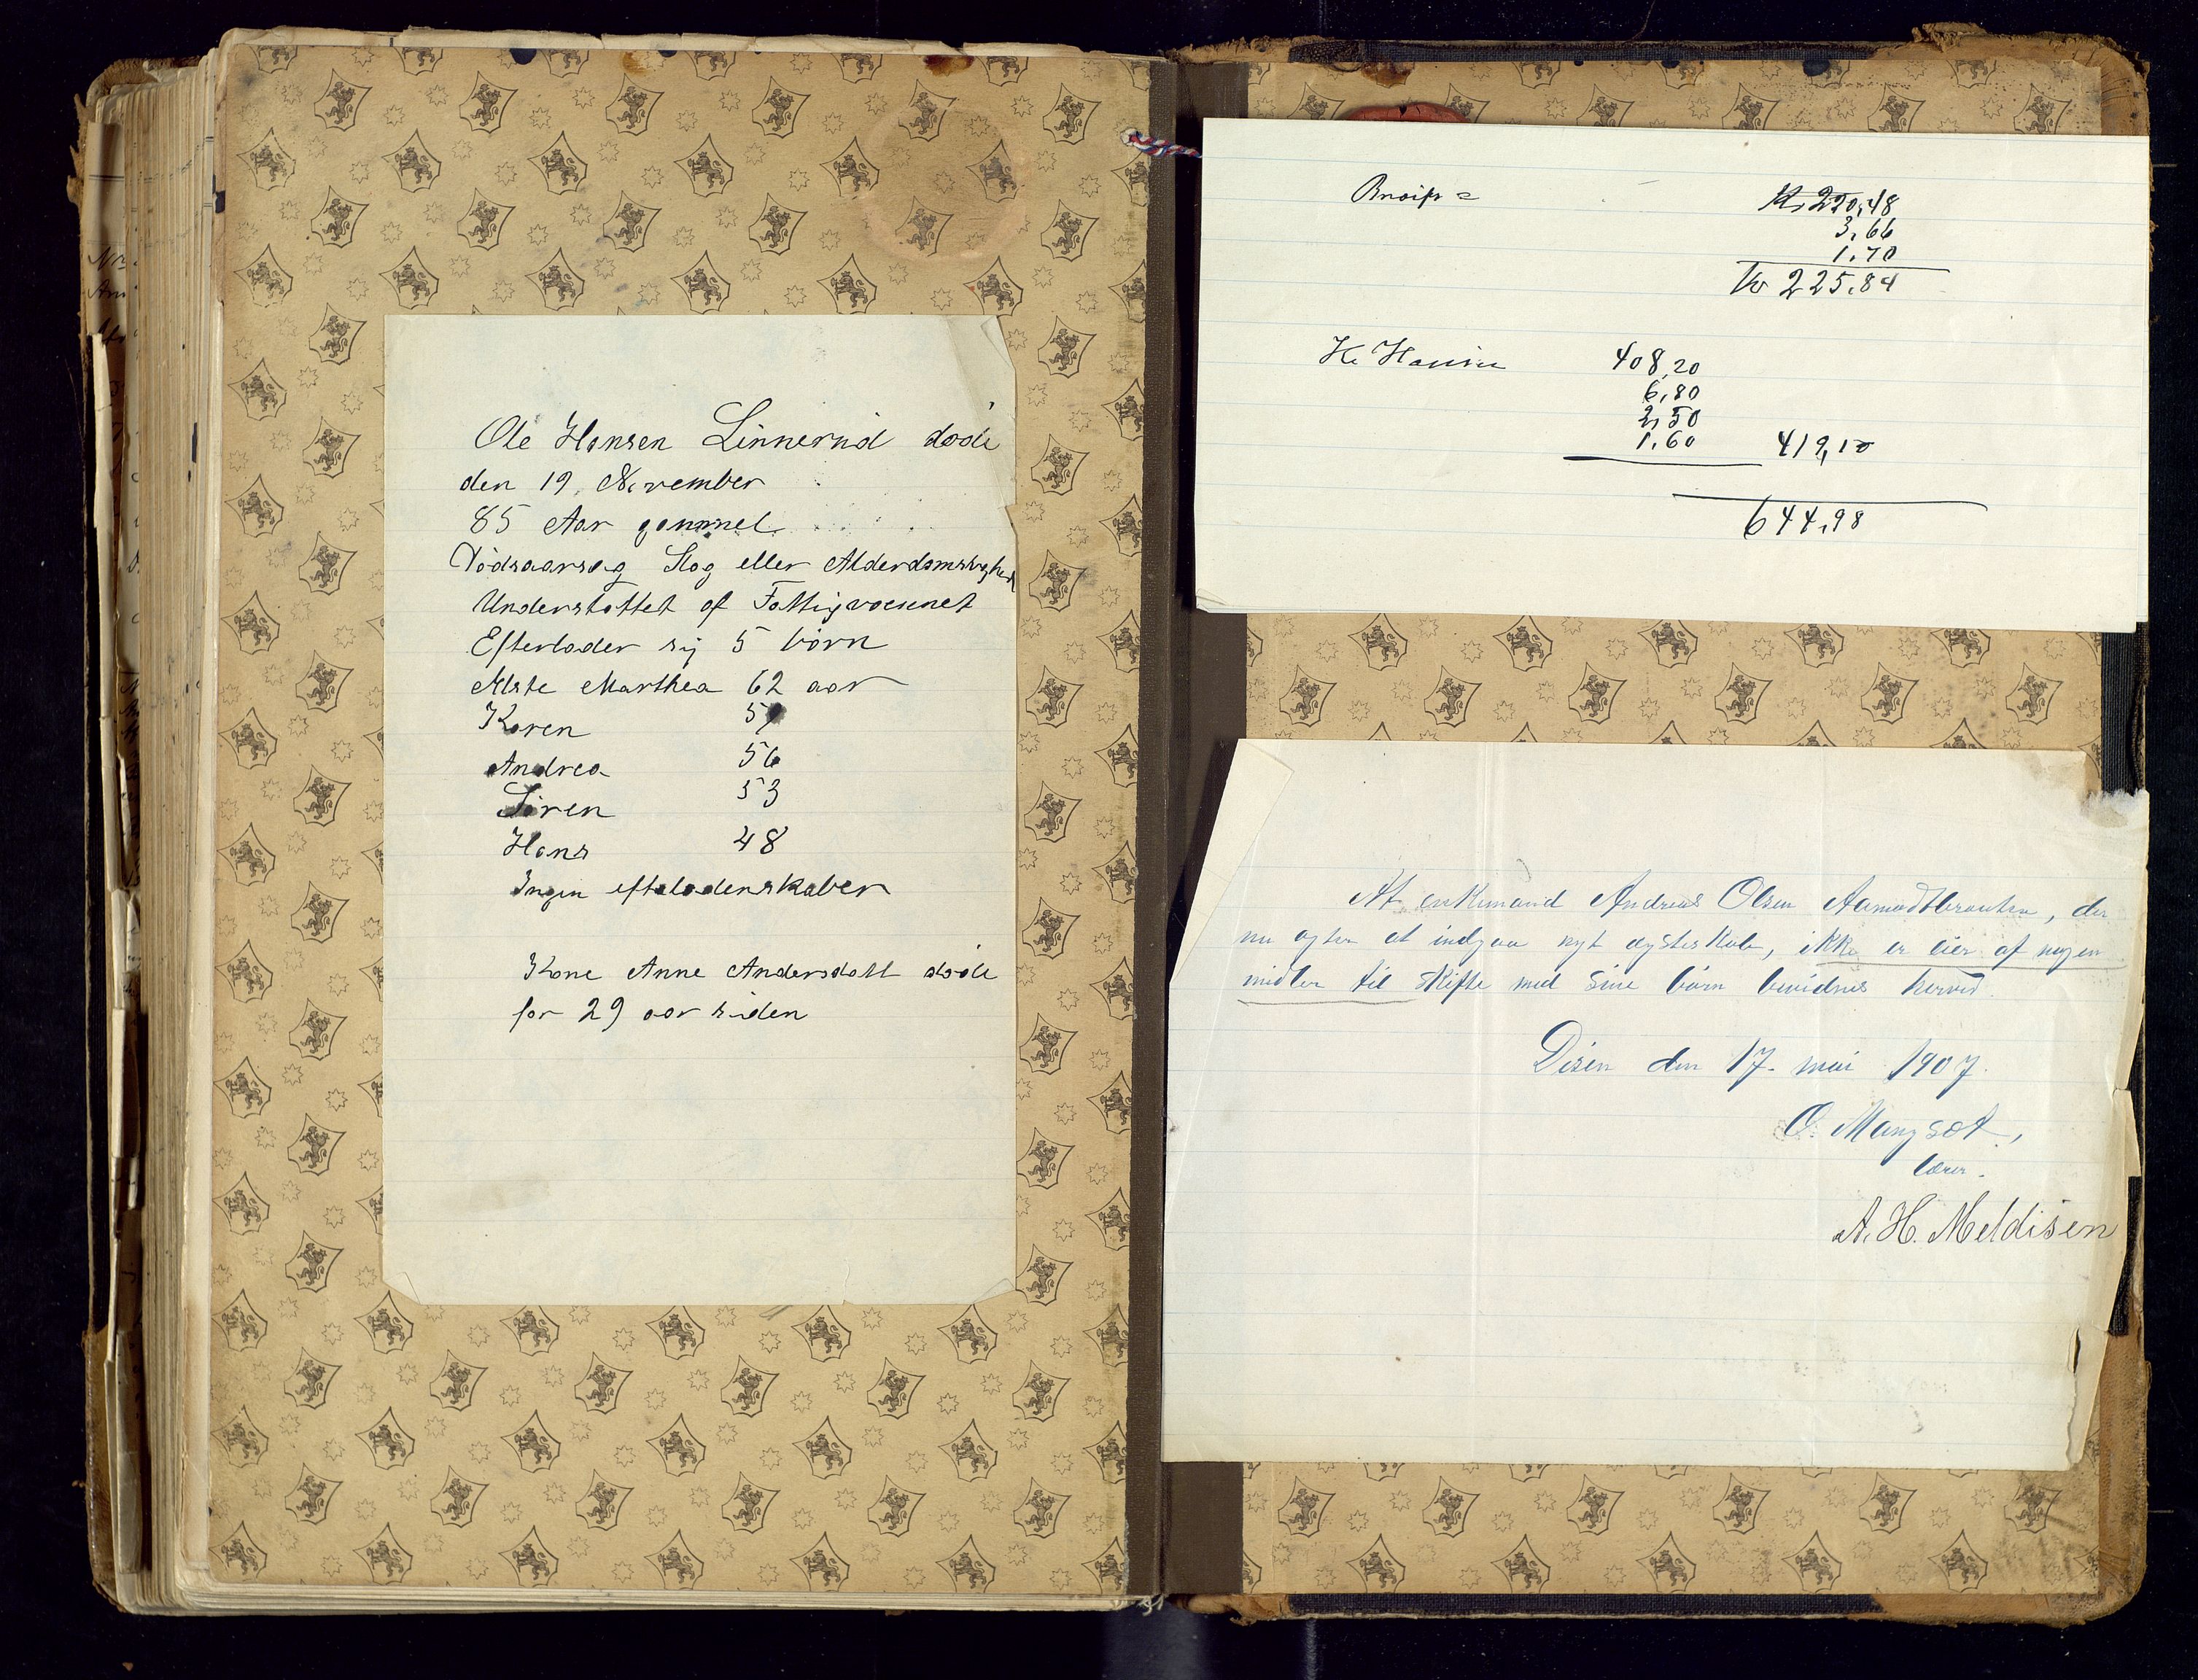 Ole Hansen Linnerud döde
den 19. November
85 Aar gammel
Dödsaarsag Slag eller Alderdomsvaghed
Understöttet af Fattigvæsenet
Efterlader sig 5 börn
Elste Marthea 62 aar
Karen 59
Andrea 56
Sören 53
Hans 48
Ingen efteladenskaber
Kone Anne Andersdatt döde
for 29 aar siden
Kr 220,48
3,66
1,70
Kr 225,84
K. Hansen 408,20
6,80
2,50
1,60 419,10
644,98
At enkemand Andreas Olsen Aamodtbraaten, der
nu agter at indgaa nyt ægteskab, ikke er eier af nogen
midler til skifte med sine börn bevidnes herved
Disen den 17. mai 1907.
O. Mangset,
lærer.
A. H. Meldisen